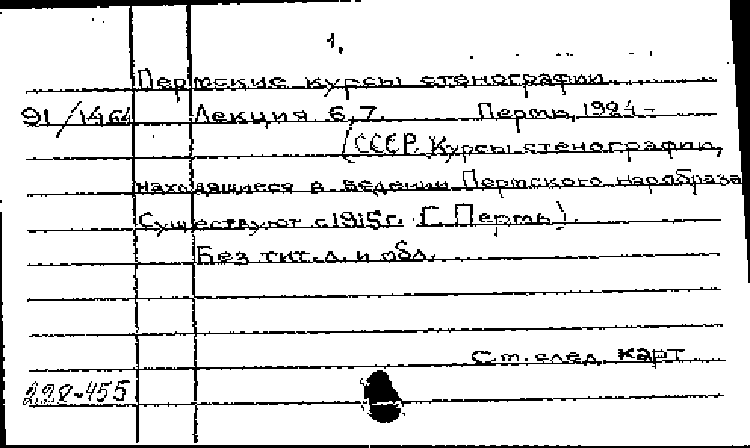 1.
Пермские курсы стенографии.
91/1464 Лекция 6,7. Пермь, 1924-
(СССР. Курсы стенографии,
находящиеся в ведении Пермского наробраза
Существуют с 1915 г. Г. Пермь).
Без тит.л. и обл.
См. след. карт
228-455